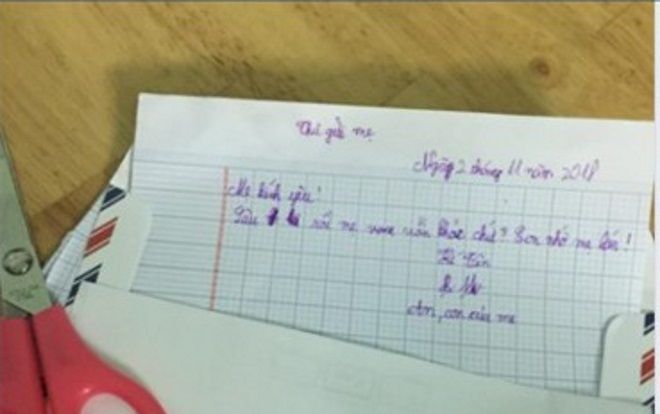 Thư gửi mẹ
Ngày 2 tháng 11 năm 2018
Mẹ kính yêu!
rồi mẹ vẫn khỏe chứ? Con nhớ mẹ lắm!
Kí tên
An
An, con của mẹ